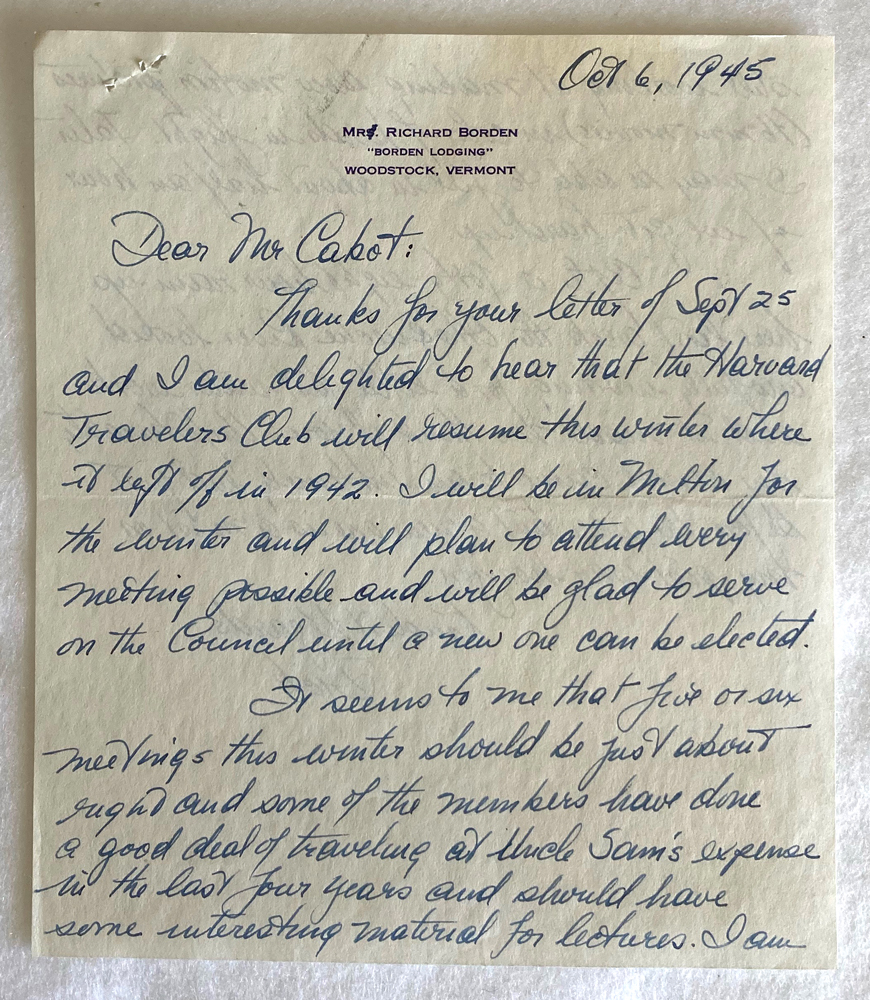 Oct 6, 1945
MRS. RICHARD BORDEN
"BORDEN LODGING"
WOODSTOCK, VERMONT
Dear Mr Cabot:
Thanks for your letter of Sept 25
and I am delighted to hear that the Harvard
Travelers Club will resume this winter where
it left off in 1942. I will be in Milton for
the winter and will plan to attend every
meeting possible and will be glad to serve
on the Council until a new one can be elected.
It seems to me that five or six
meetings this winter should be just about
right and some of the members have done
a good deal of traveling at Uncle Sam's expense
in the last four years and should have
some interesting material for lectures. I am